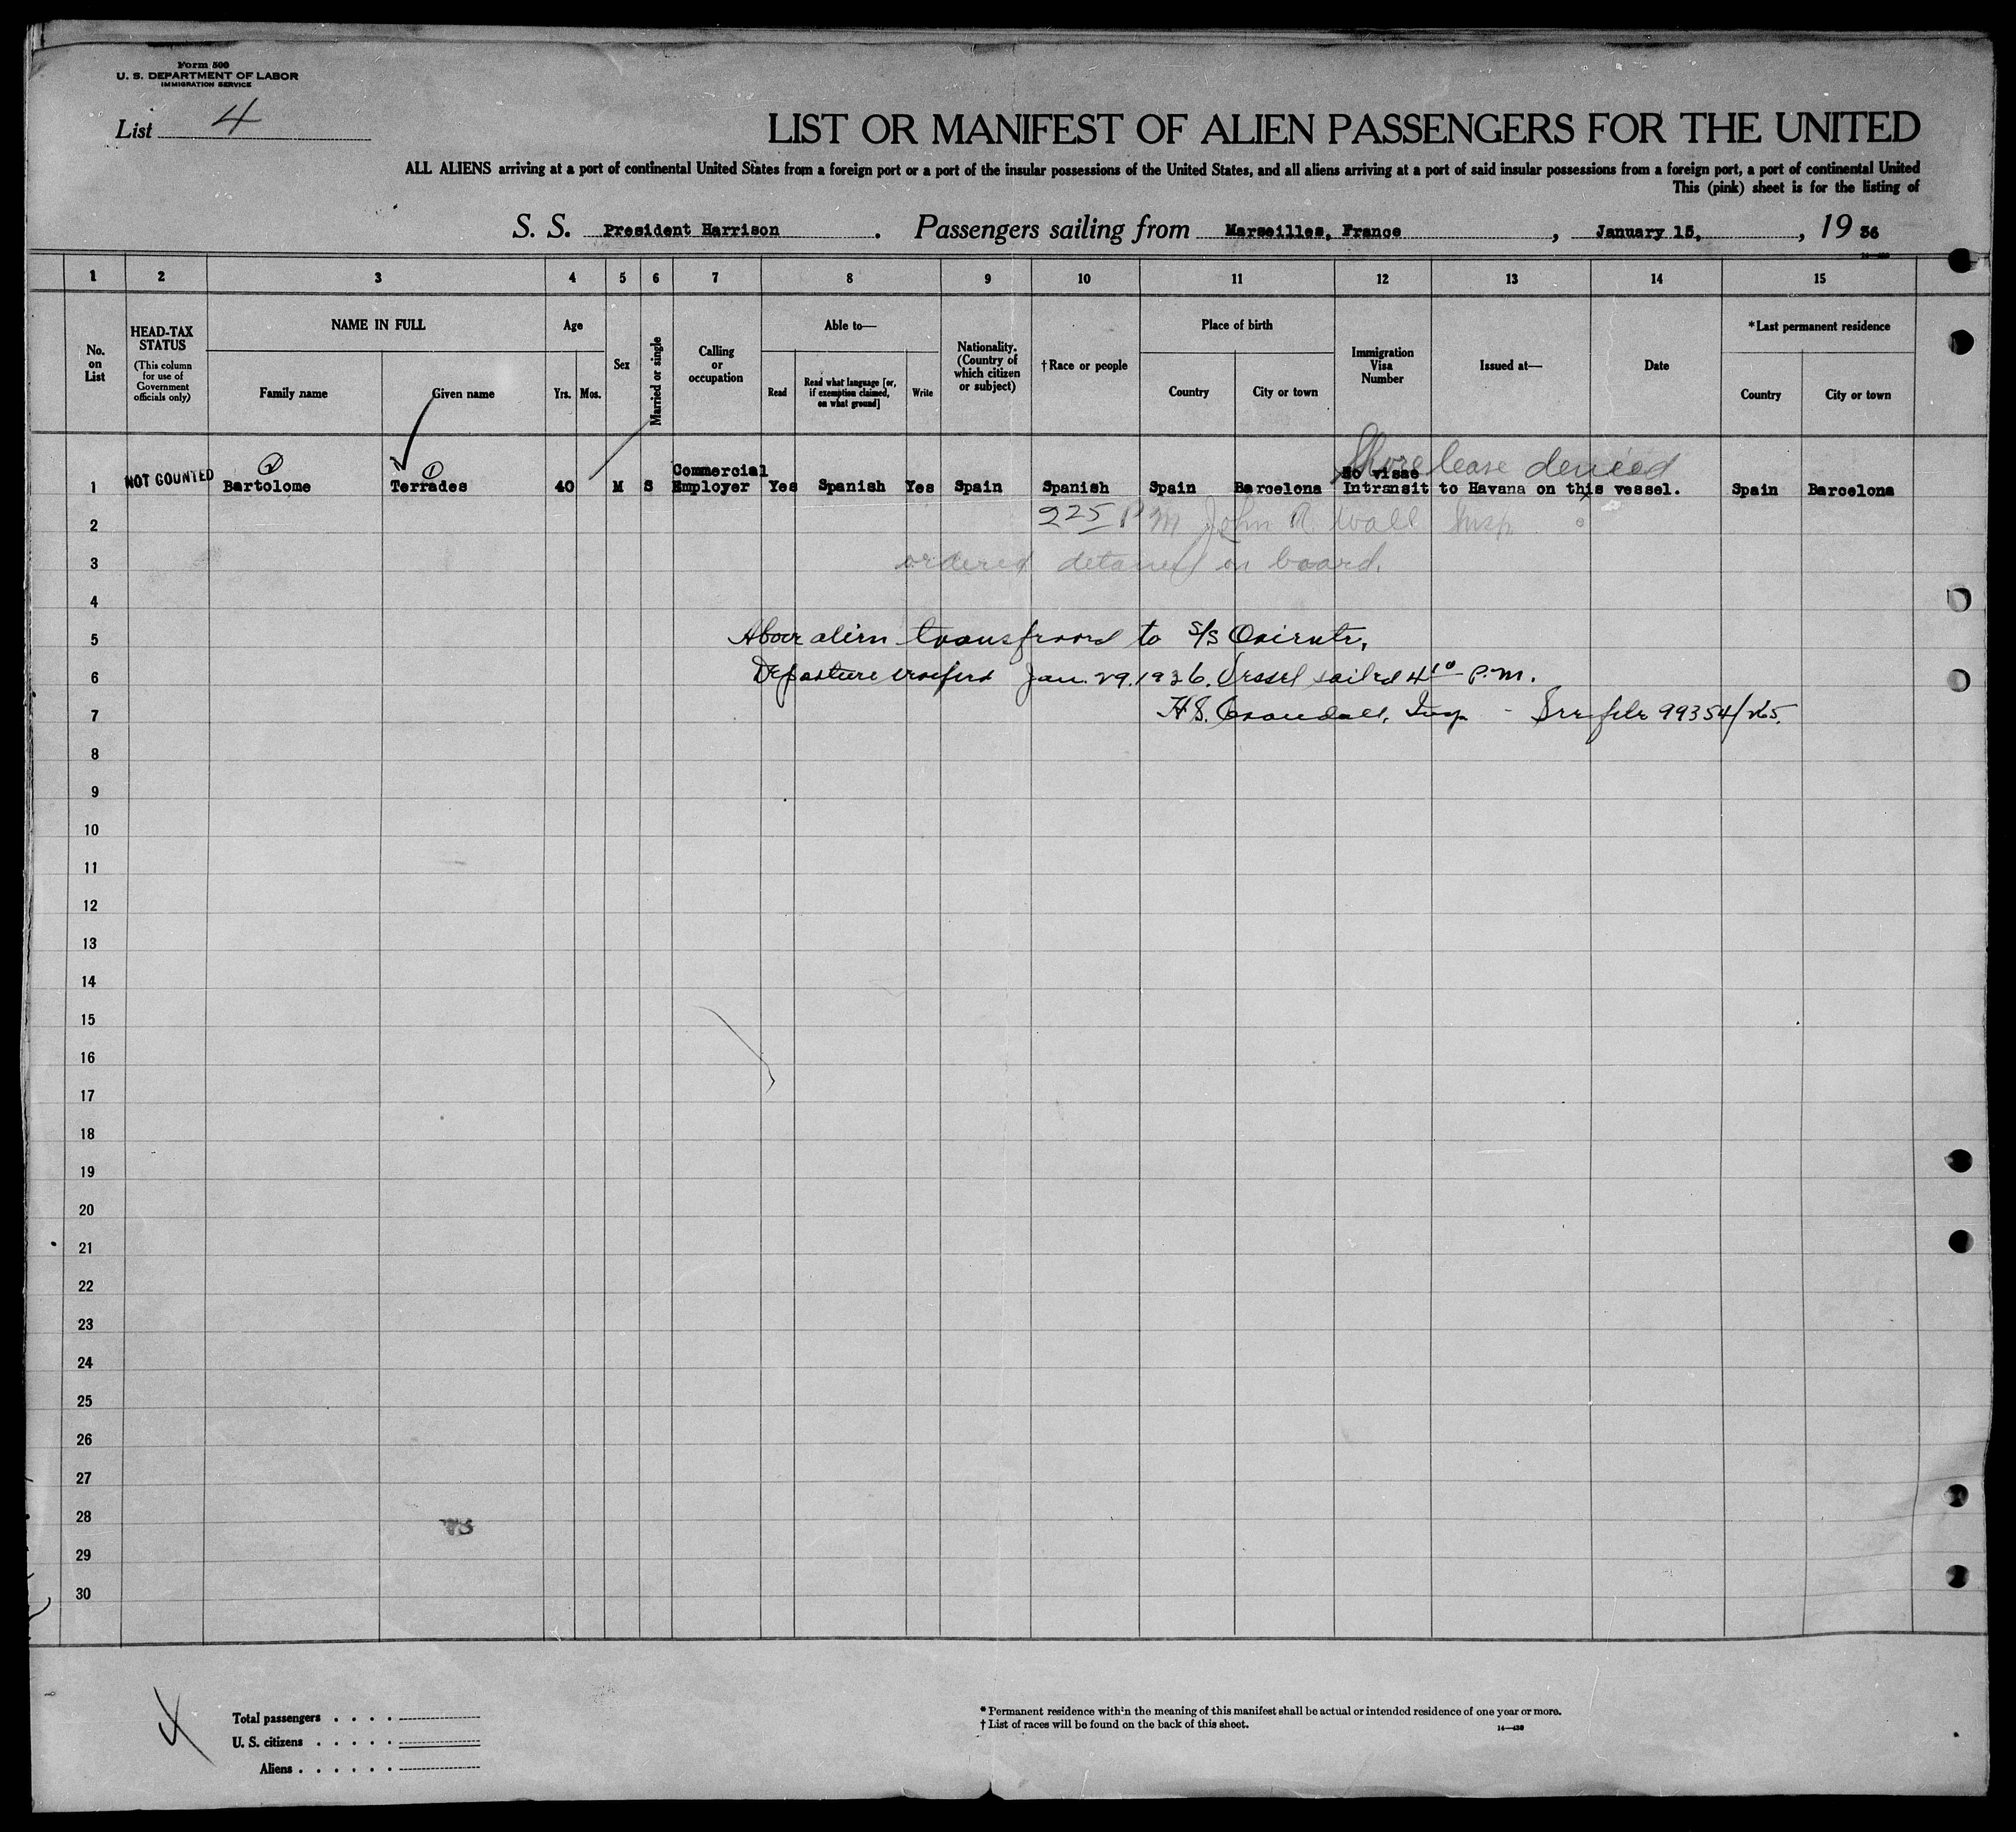 Form 500
U. S. DEPARTMENT OF LABOR
IMMIGRATION SERVICE
List 4
LIST OR MANIFEST OF ALIEN PASSENGERS FOR THE UNITED
ALL ALIENS arriving at a port of continental United States from a foreign port or a port of the insular possessions of the United States, and all aliens arriving at a port of said insular possessions from a foreign port, a port of continental United
This (pink) sheet is for the listing of
S. S. President Harrison . Passengers sailing from Marseilles, France , January 15, , 19 36
1 2 3 4 5 6 7 8 9 10 11 12 13 14 15
No. on List
HEAD-TAX STATUS
(This column for use of Government officials only)
NAME IN FULL
Family name
Given name
Age
Yrs.
Mos.
Sex
Married or single
Calling or occupation
Able to—
Read
Read what language [or, if exemption claimed, on what ground]
Write
Nationality. (Country of which citizen or subject)
†Race or people
Place of birth
Country
City or town
Immigration Visa Number
Issued at—
Date
*Last permanent residence
Country
City or town
Shore lease denied
Commercial No visae
1 NOT COUNTED Bartolome Terrades 40 M S Employer Yes Spanish Yes Spain Spanish Spain Barcelona Intransit to Havana on this vessel. Spain Barcelona
2 2 25 P M John R. Wall Insp
3 ordered detained on board.
4
5 Above alien transferred to S/S Oriente,
6 Departure verified Jan. 29, 1936. Vessel sailed 4 10 P.M.
7 H.S. Crandall, Insp. - See file 99354/265.
8
9
10
11
12
13
14
15
16
17
18
19
20
21
22
23
24
25
26
27
28
29
30
Total passengers
U. S. citizens
Aliens
* Permanent residence within the meaning of this manifest shall be actual or intended residence of one year or more.
† List of races will be found on the back of this sheet.